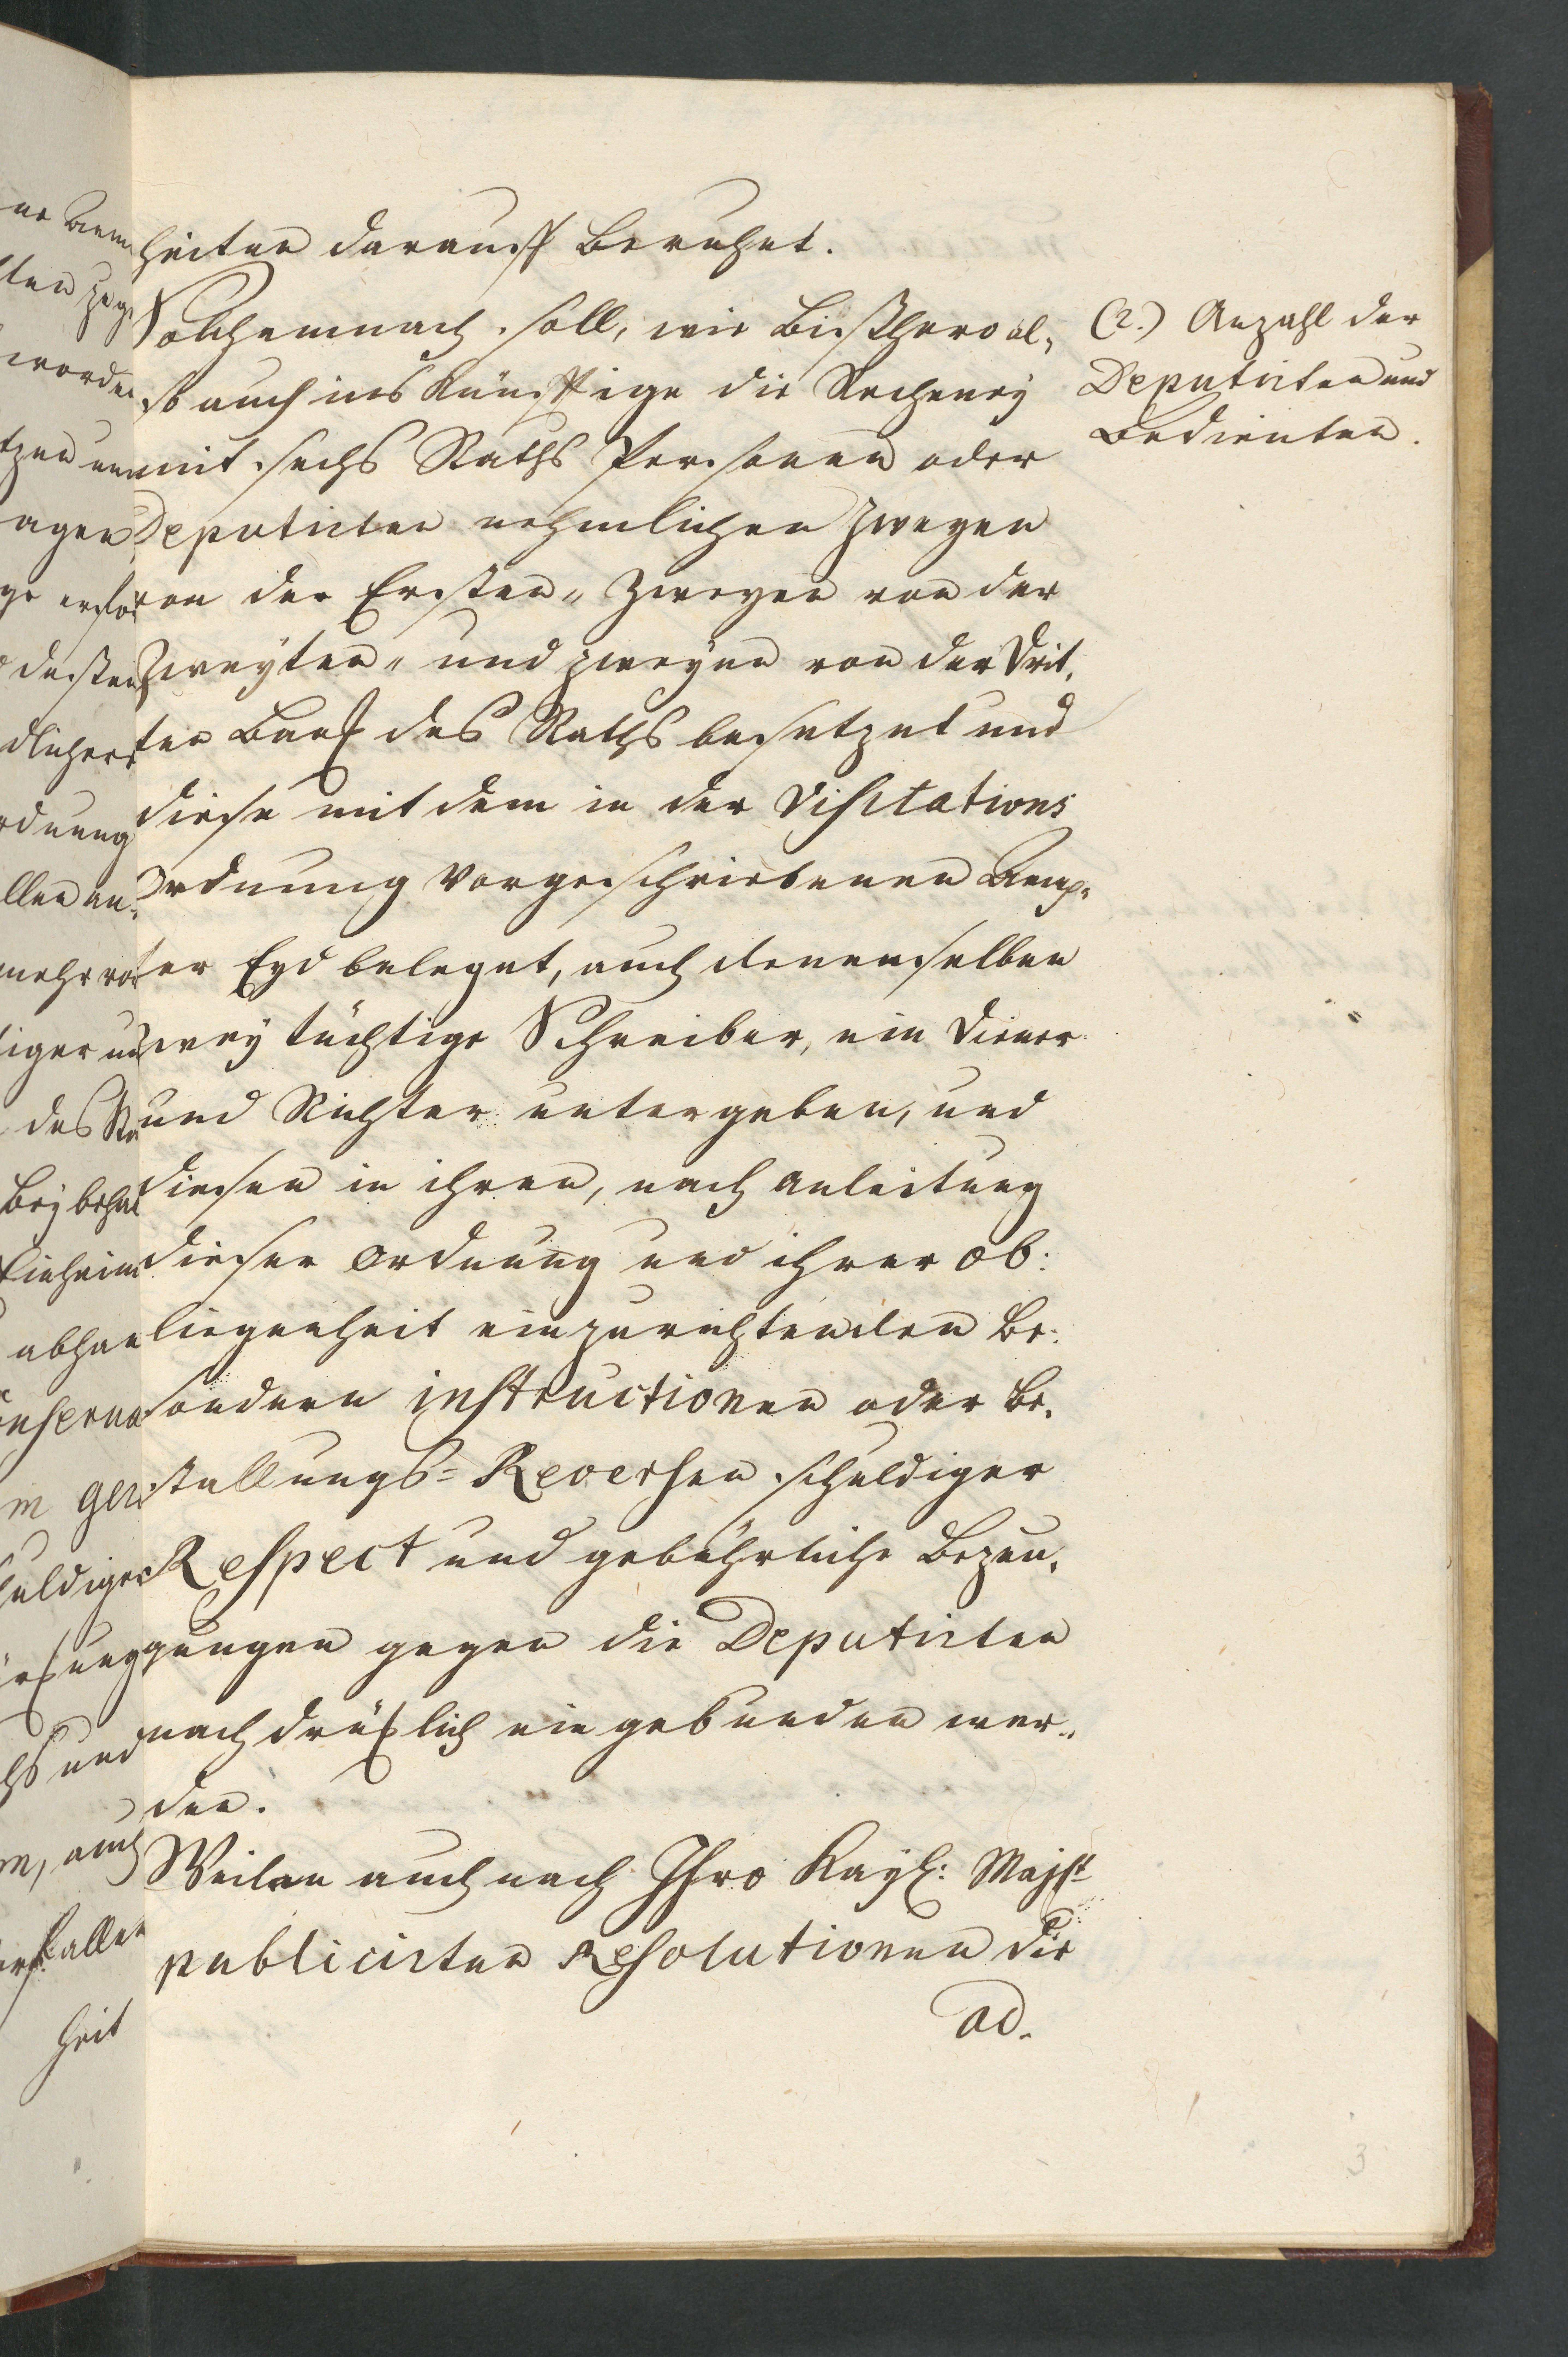 heiten darauff beruhet.
Solchemnach soll, wie bißhero al,
so auch ins Künfftige die Recheney
mit sechs Raths Personen oder
Deputirten nehmlichen zweyen
von der Ersten„ Zweyen von der
Zweyten„ und zweyen von der Drit,
ten Banck des Raths besetzet und
diese mit dem in der Visitations
Ordnung vorgeschriebenen Aemp„
ter Eyd beleget, auch denenselben
zwey tüchtige Schreiber, ein Diener
und Richter untergeben, und
diesen in ihren, nach anleitung
dieser Ordnung und ihrer Ob:
liegenheit einzurichtenden be:
sondern instructionen oder be,
stallungs=Reversen schuldiger
Respect und gebührliche Bezeu,
gungen gegen die Deputirten
nachdrücklich eingebunden wer„
den.
Weilen auch nach Ihro Kayß: Majst
publicirten Resolutionen die
ad.
(2.) Anzahl der
Deputirten und
Bedienten.
3